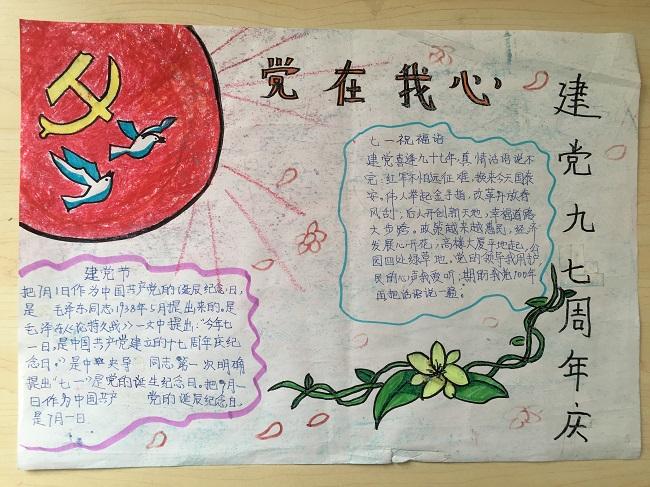 党在我心
建党九七周年庆
七一祝福语
建党喜逢九十七年,真情话语说不
完,红军不怕远征难,换来今天国泰
安,伟人举起金手指,改革开放春
风刮;后人开创新天地,幸福道路
大步跨。政策越来越惠民,经济
发展心开花,高楼大厦平地起,公
园四处绿草地。党的领导我用护
民的心声我要听;期的我党100年
再把话语说一遍。
建党节
把7月1日作为中国共产党的诞辰纪念日,
是 毛泽东同志1938年5月提出来的。是
毛泽在《论持久战》一文中提出:“今年七
一日,是中国共产党建立的十七周年庆纪
念日。”是中央 导 同志第一次明确
提出“七一”是党的诞生纪念日。把7月一
日作为中国共产 党的诞辰纪念日,
是7月一日